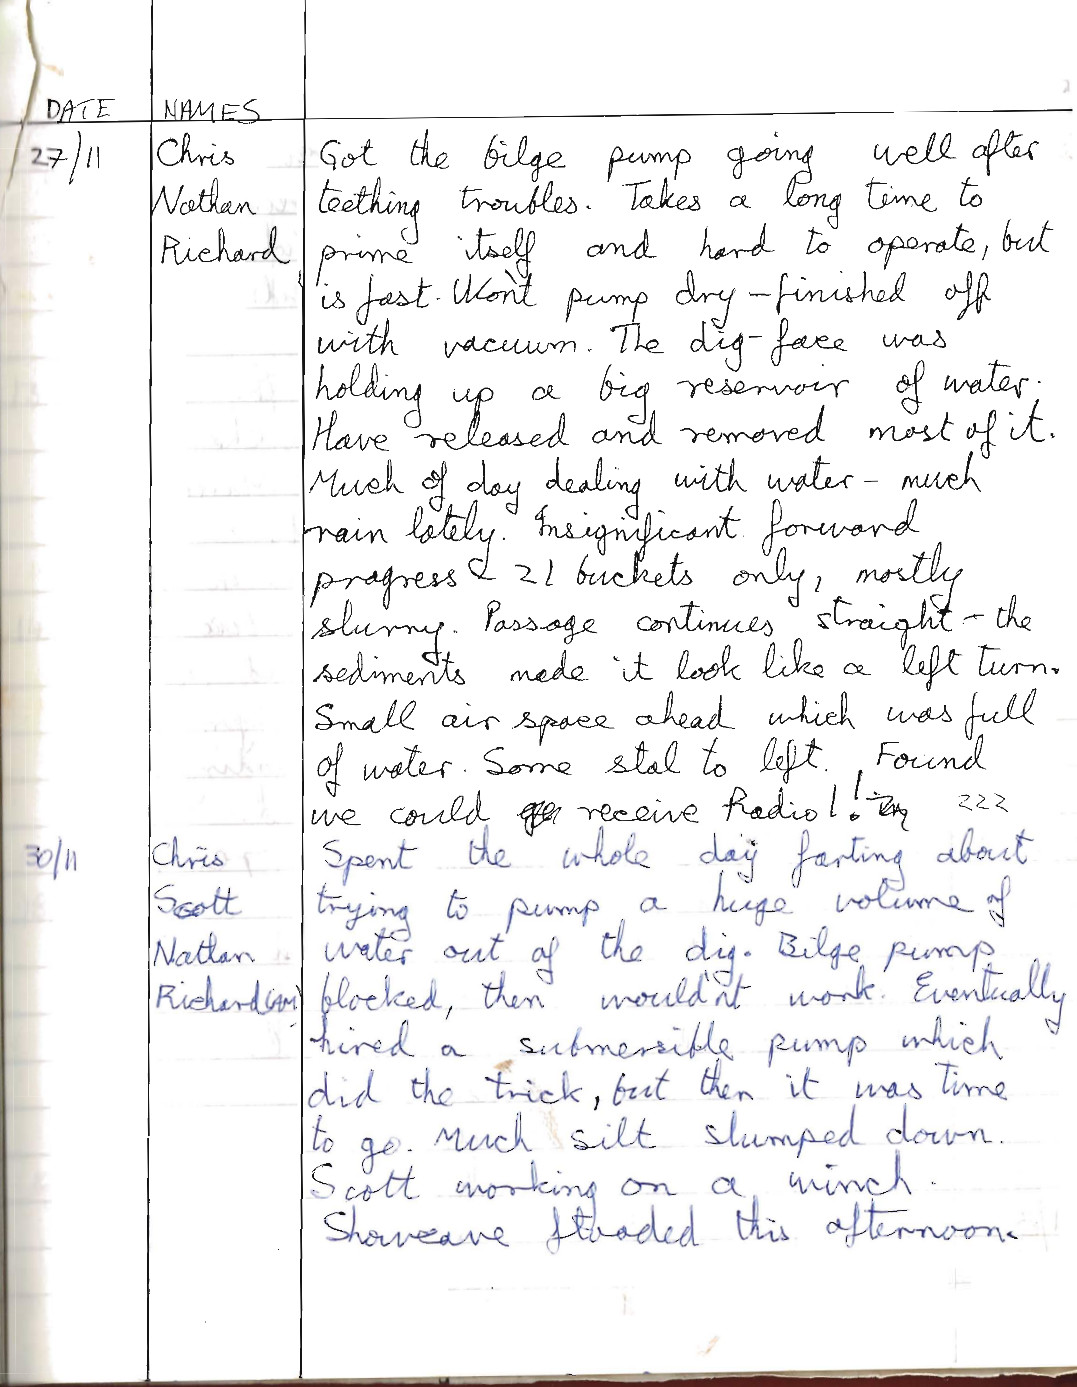 DATE NAMES
27/11 Chris Got the bilge pump going well after
Nathan teething troubles. Takes a long time to
Richard prime itself and hard to operate, but
is fast. Won't pump dry - finished off
with vacuum. The dig-face was
holding up a big reservoir of water.
Have released and removed most of it.
Much of day dealing with water - much
rain lately. Insignificant forward
progress & 21 buckets only, mostly
slurry. Passage continues straight - the
sediments made it look like a left turn.
Small air space ahead which was full
of water. Some stal to left. Found
we could receive Radio!! 222
30/11 Chris Spent the whole day farting about
Scott trying to pump a huge volume of
Nathan water out of the dig. Bilge pump
Richard (AM) blocked, then wouldn't work. Eventually
hired a submersible pump which
did the trick, but then it was time
to go. Much silt slumped down.
Scott working on a winch.
Showcave flooded this afternoon.